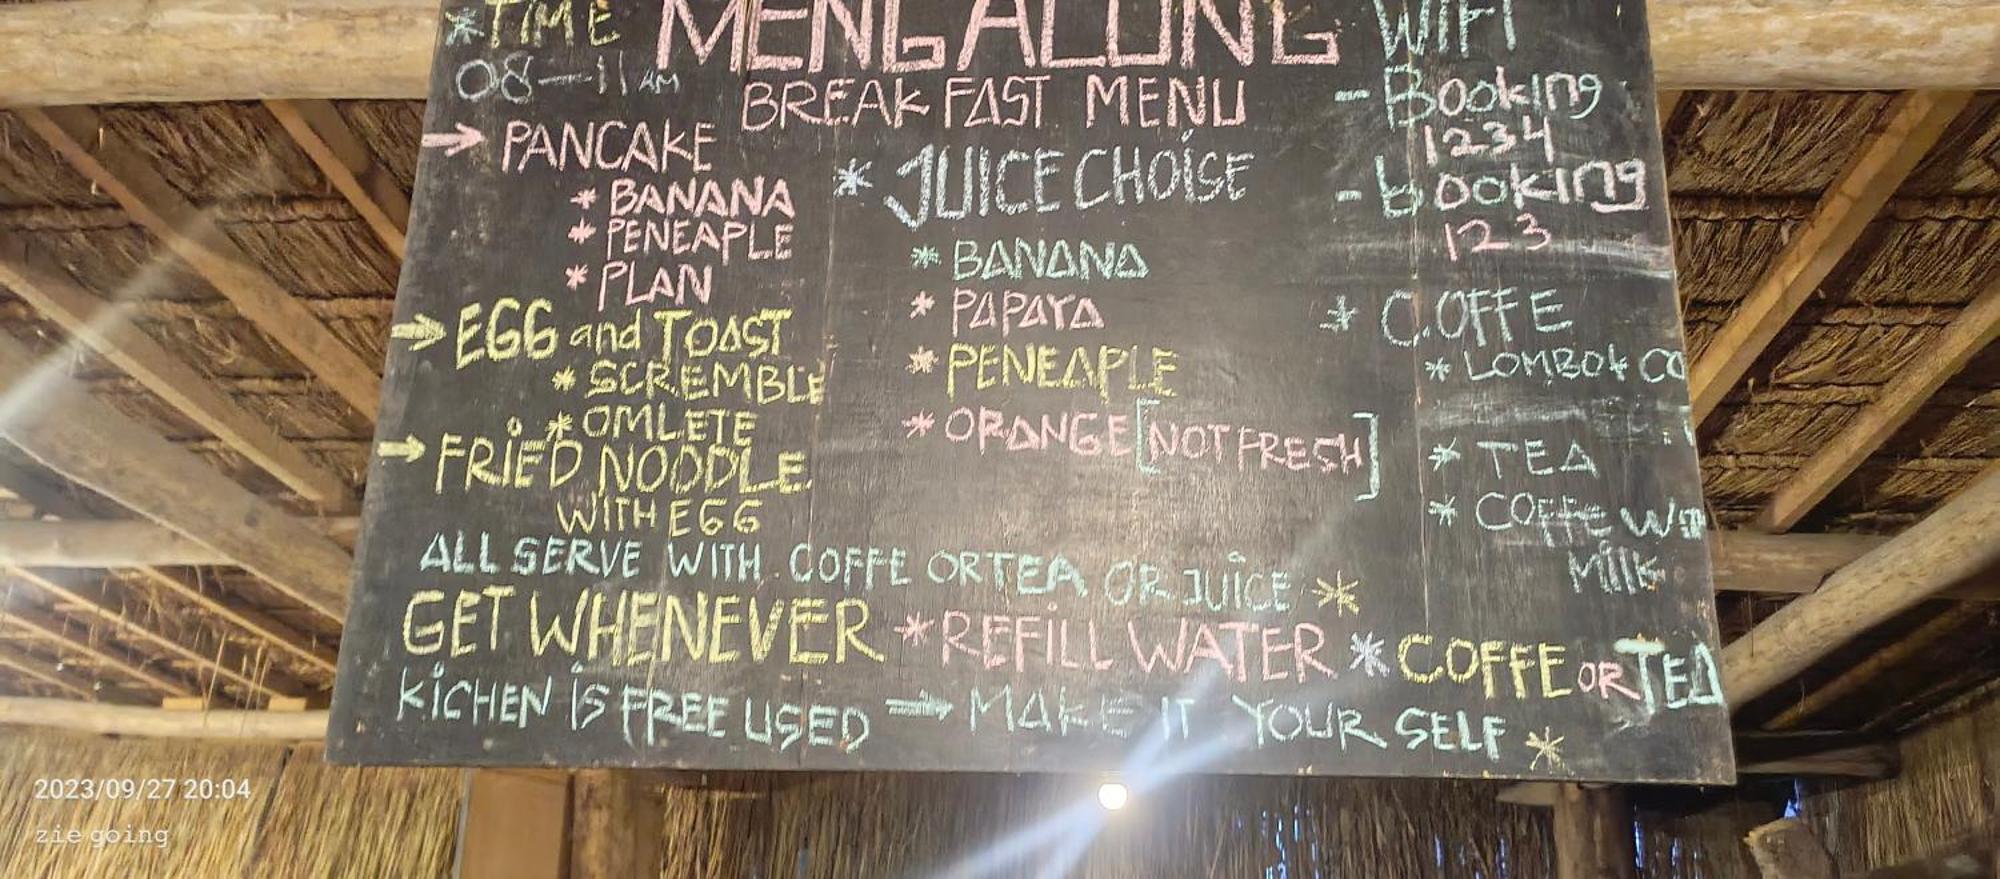 *TIME
08-11 AM
MENGALUNG
BREAKFAST MENU
→ PANCAKE
* BANANA
* PENEAPLE
* PLAN
→ EGG and TOAST
* SCREMBLE
* OMLETE
→ FRiED NOODLE
WITH EGG
* JUICE CHOiSE
* BANANA
* PAPAYA
* PENEAPLE
* ORANGE [NOT FRESH]
WIFI
- Booking
1234
- booking
123
* COFFE
* LOMBOK CO
* TEA
* COFFE WITH
Milk
ALL SERVE WITH COFFE OR TEA OR JUiCE *
GET WHENEVER *REFiLL WATER * COFFE OR TEA
KiCHEN iS FREE USED → MAKE IT YOUR SELF *
2023/09/27 20:04
zie going